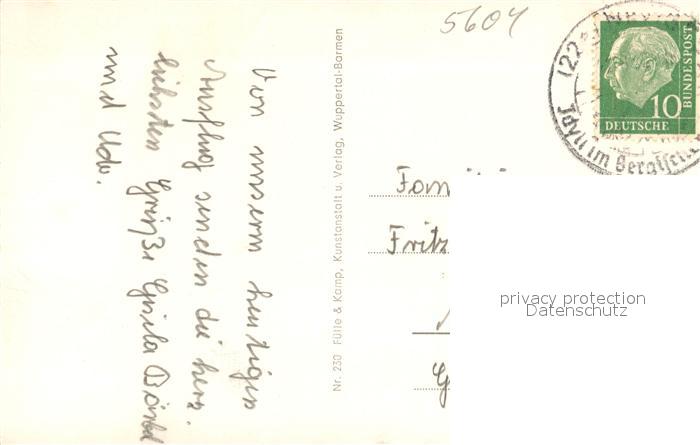 5604
(22
Idyll im Bergischen
10
DEUTSCHE
BUNDESPOST
Von unserm heutigen
Ausflug senden die herz-
lichsten Grüße Gisela Bärbel
und Udo.
Nr. 230 Fülle & Kamp, Kunstanstalt u. Verlag, Wuppertal-Barmen
Fritz
privacy protection
Datenschutz